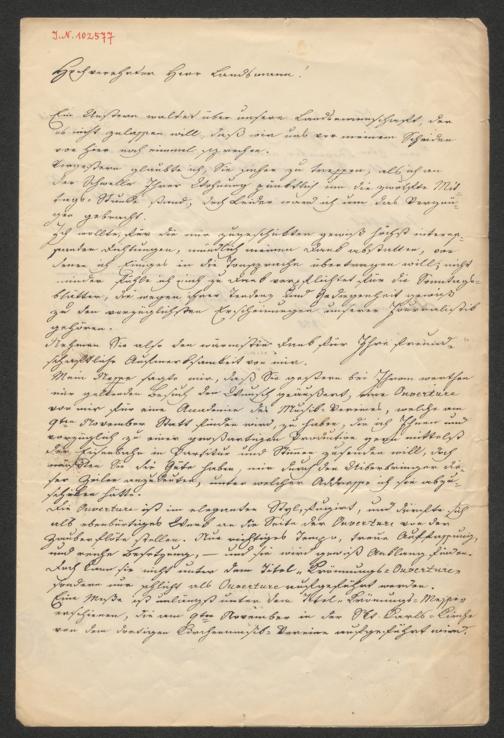 I.N. 102577
Hochverehrter Herr Landsmann!
Ein Unstern waltet über unsere Landsmannschaft, der
es nicht zulassen will, daß wir uns vor meinem Scheiden
von hier noch einmal sprechen.
Vorgestern glaubte ich, Sie sicher zu treffen, als ich an
der Schwelle Ihrer Wohnung pünktlich um die gewisse Mit-
tags-Stunde stand; doch leider ward ich um das Vergnü-
gen gebracht.
Ich wollte für die mir zugeschickten gewiß höchst interes-
santen Dichtungen, mündlich meinen Dank abstatten, von
denen ich Einiges in die Tonsprache übertragen will; nicht
minder fühle ich mich zu Dank verpflichtet für die Sonntags-
blätter, die wegen ihrer Tendenz und Gediegenheit gewiß
zu den vorzüglichsten Erscheinungen unserer Journalistik
gehören.
Nehmen Sie also den wärmsten Dank für Ihre freund-
schaftliche Aufmerksamkeit von mir.
Mein Neffe sagte mir, daß Sie gestern bei Ihrem werthen
mir geltenden Besuch den Wunsch geäußert, eine Ouverture
von mir für eine Academie des Musik-Vereins, welche am
9ten November Statt finden wird, zu haben, die ich Ihnen und
vorzüglich zu einer großartigen Produktion gern mittelst
der Eisenbahn in Partitur und Stimmen zusenden will, doch
müßten Sie die Güte haben, mir durch den Überbringer die-
ser Zeilen anzudeuten, unter welcher Addresse ich sie abzu-
schicken hätte.
Die Ouverture ist im eleganten Styl, fugirt, und dürfte sich
als ebenbürtiges Werk an die Seite der Ouverture von der
Zauberflöte stellen. Nur richtiges Tempo, treue Auffassung,
und reiche Besetzung, — und sie wird gewiß Anklang finden.
Doch kann sie nicht unter dem Titel „Krönungs-Ouverture"
sondern nur schlicht als Ouverture aufgeführt werden.
Eine Messe ist unlängst unter dem Titel „Krönungs-Messe"
erschienen, die am 9ten November in der St. Karls-Kirche
von dem dortigen Kirchenmusik-Vereine aufgeführt wird.